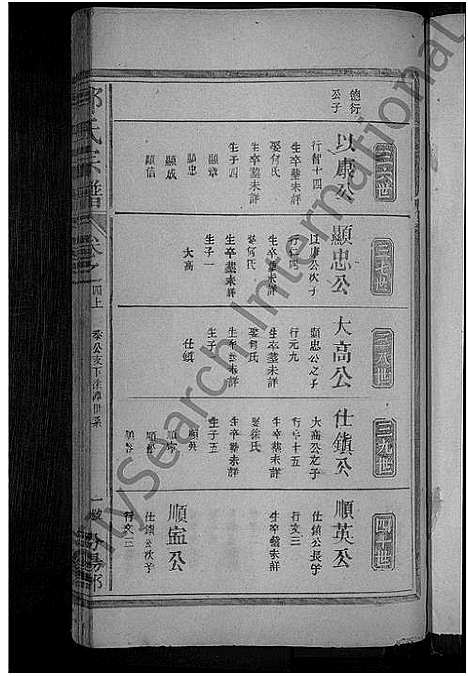 三六世
德衍
公子
以康公
行智十四
生卒塟未詳
娶何氏
生卒塟未詳
生子四
顯章
顯忠
顯成
顯信
三七世
顯忠公
以康公次子
生卒塟未詳
娶何氏
生卒塟未詳
生子一
大高
三八世
大高公
顯忠公之子
行元九
生卒塟未詳
娶何氏
生卒塟未詳
生子一
仕鎮
三九世
仕鎮公
大高公之子
行亨十五
生卒塟未詳
娶徐氏
生卒塟未詳
生子五
順英
四十世
順英公
仕鎮公長子
行文三
生卒塟未詳
仕鎮公次子
氏宗譜
卷之四上
汾陽郡
MySearch International